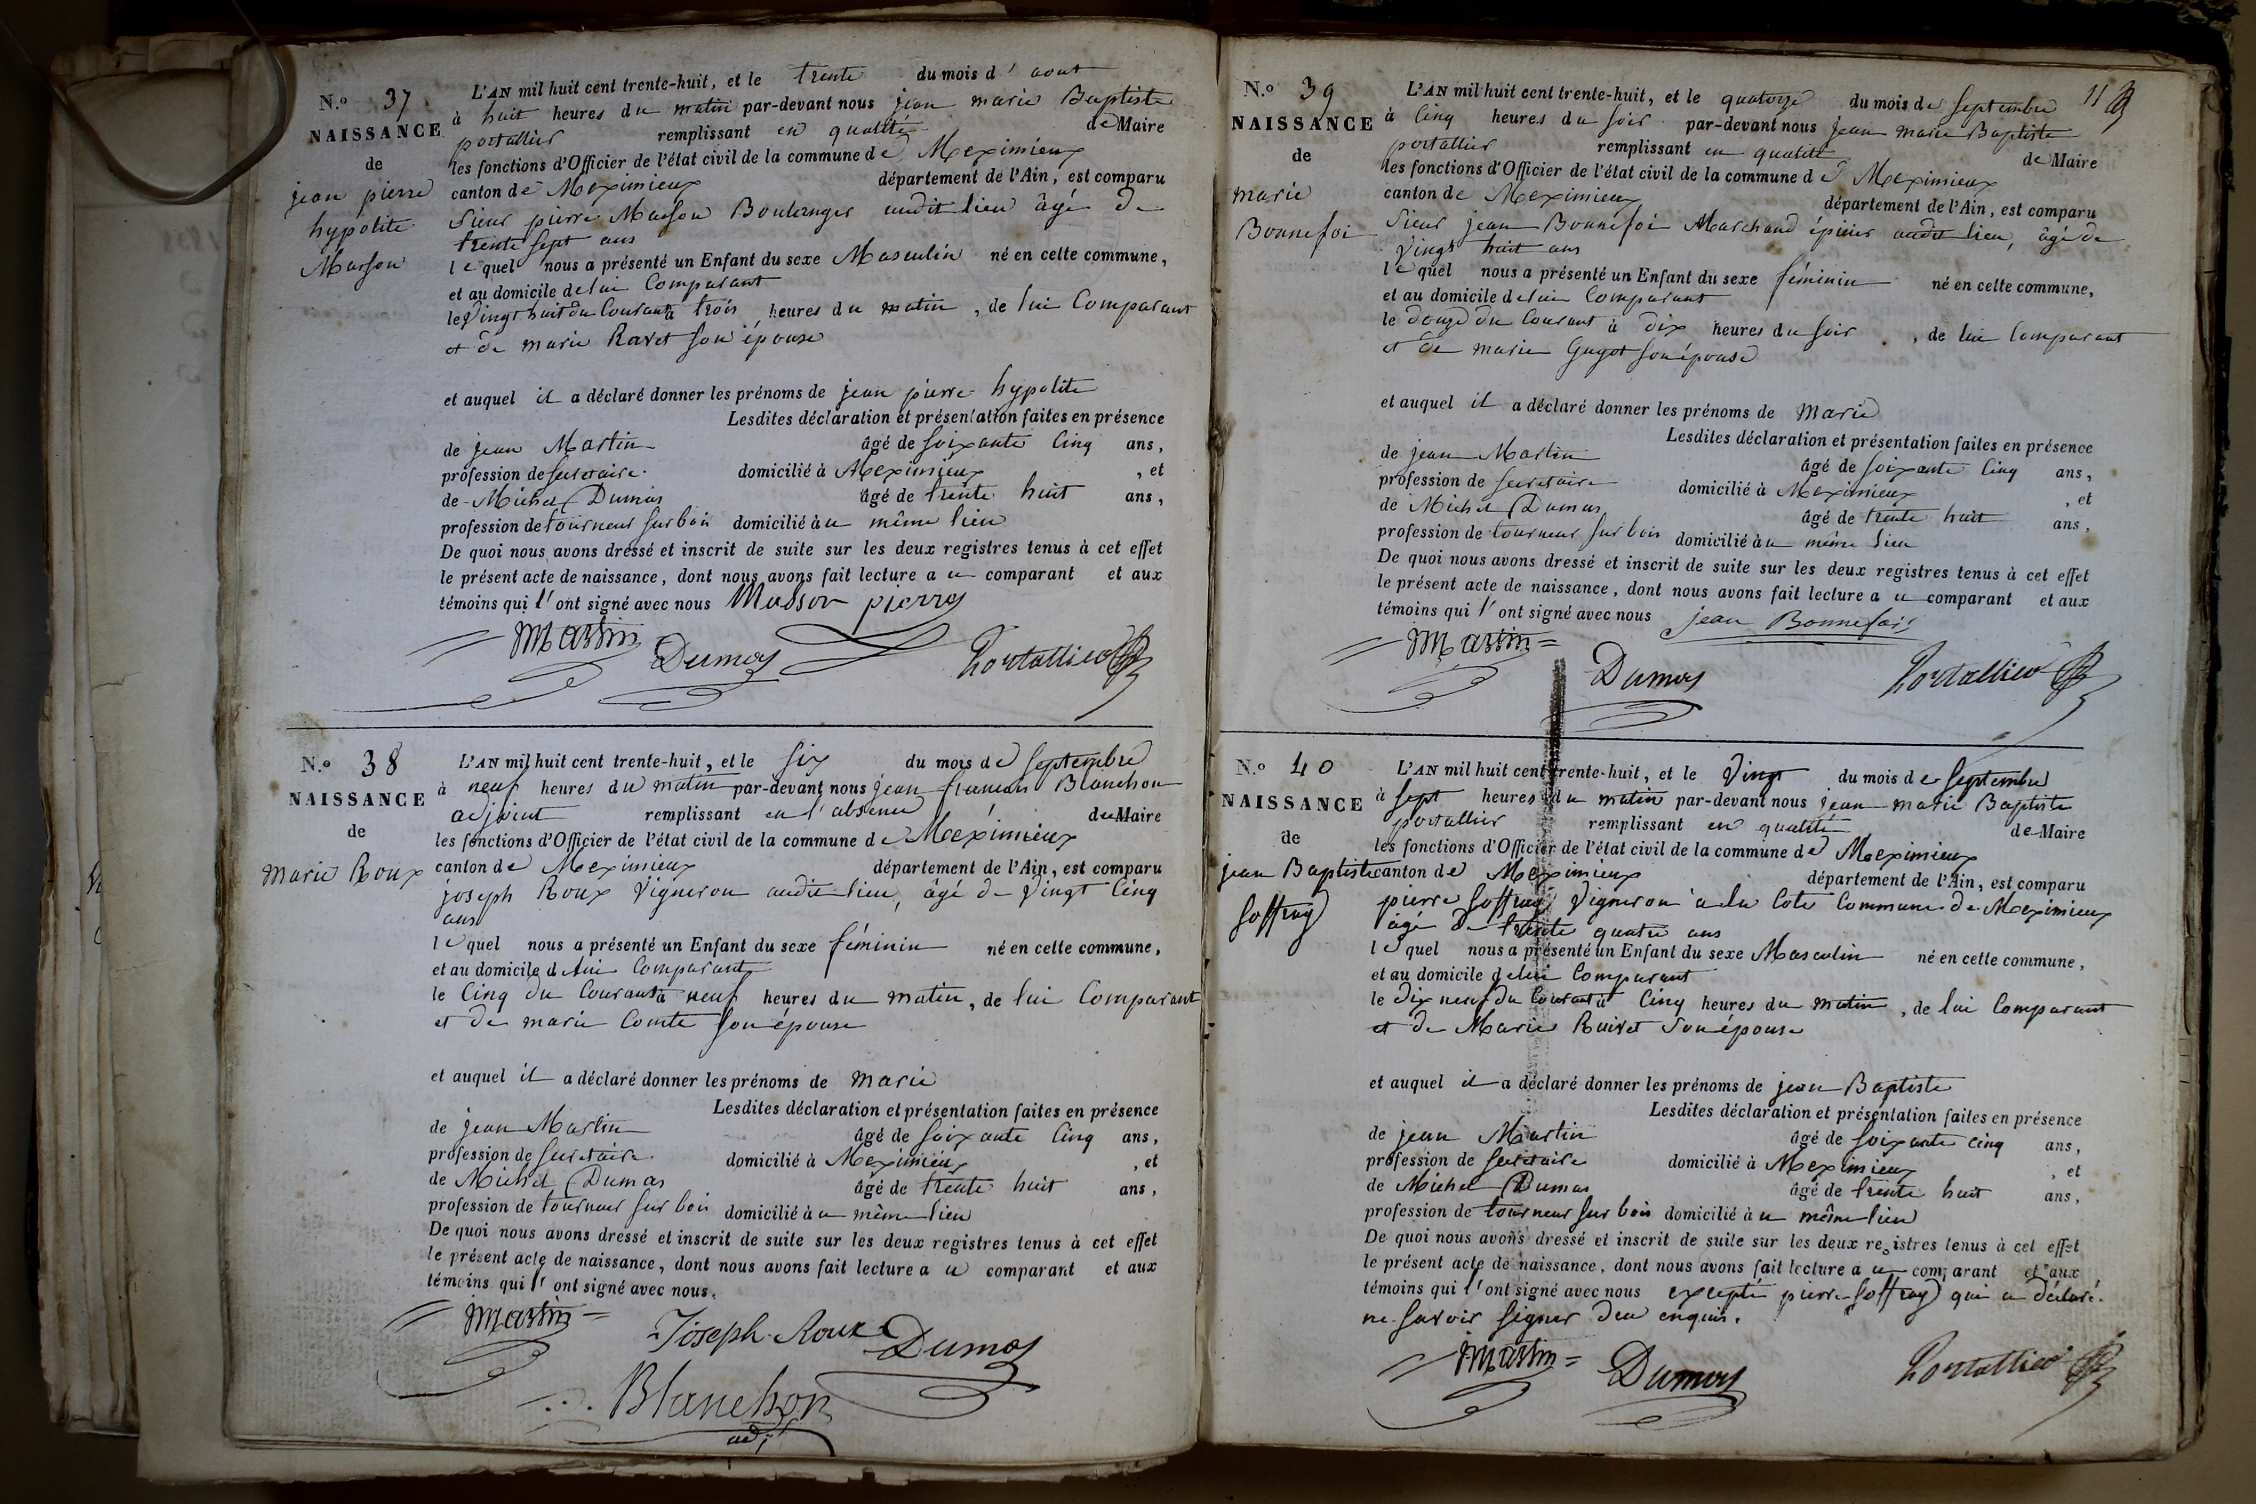 N.o 37
NAISSANCE
de
jean pierre
hypolite
Masson
L'AN mil huit cent trente-huit, et le trente du mois d' aout
à huit heures du matin par-devant nous jean marie Baptiste
portallier remplissant en qualité de Maire
les fonctions d'Officier de l'état civil de la commune de Meximieux
canton de Meximieux département de l'Ain, est comparu
Sieur pierre Masson Boulanger audit lieu âgé de
trente sept ans
lequel nous a présenté un Enfant du sexe Masculin né en cette commune,
et au domicile de lui Comparant
le Vingt huit du Courant à trois heures du matin, de lui Comparant
et de marie Ravet son épouse
et auquel il a déclaré donner les prénoms de jean pierre hypolite
Lesdites déclaration et présentation faites en présence
de jean Martin âgé de soixante Cinq ans,
profession de secretaire domicilié à Meximieux, et
de Michel Dumas âgé de trente huit ans,
profession de tourneur sur bois domicilié au même lieu
De quoi nous avons dressé et inscrit de suite sur les deux registres tenus à cet effet
le présent acte de naissance, dont nous avons fait lecture au comparant et aux
témoins qui l'ont signé avec nous Masson pierre
Martin Dumas Portallier
N.o 38
NAISSANCE
de
marie Roux
L'AN mil huit cent trente-huit, et le six du mois de septembre
à neuf heures du matin par-devant nous jean Blanchon
adjoint remplissant en l'absence du Maire
les fonctions d'Officier de l'état civil de la commune de Meximieux
canton de Meximieux département de l'Ain, est comparu
joseph Roux Vigneron audit lieu, âgé de Vingt Cinq
ans
lequel nous a présenté un Enfant du sexe féminin né en cette commune,
et au domicile de lui Comparant
le Cinq du Courant à neuf heures du matin, de lui Comparant
et de marie Comte son épouse
et auquel il a déclaré donner les prénoms de marie
Lesdites déclaration et présentation faites en présence
de jean Martin âgé de soixante Cinq ans,
profession de secretaire domicilié à Meximieux, et
de Michel Dumas âgé de trente huit ans,
profession de tourneur sur bois domicilié au même lieu
De quoi nous avons dressé et inscrit de suite sur les deux registres tenus à cet effet
le présent acte de naissance, dont nous avons fait lecture au comparant et aux
témoins qui l'ont signé avec nous.
Martin Joseph Roux Dumas
Blanchon
adj
11
N.o 39
NAISSANCE
de
marie
Bonnefoi
L'AN mil huit cent trente-huit, et le quatorze du mois de septembre
à Cinq heures du soir par-devant nous jean marie Baptiste
portallier remplissant en qualité de Maire
les fonctions d'Officier de l'état civil de la commune de Meximieux
canton de Meximieux département de l'Ain, est comparu
Sieur jean Bonnefoi Marchand épicier audit lieu, âgé de
Vingt huit ans
lequel nous a présenté un Enfant du sexe féminin né en cette commune,
et au domicile de lui Comparant
le douze du Courant à dix heures du soir, de lui Comparant
et de marie Guyot son épouse
et auquel il a déclaré donner les prénoms de Marie
Lesdites déclaration et présentation faites en présence
de jean Martin âgé de soixante Cinq ans,
profession de secretaire domicilié à Meximieux, et
de Michel Dumas âgé de trente huit ans,
profession de tourneur sur bois domicilié au même lieu
De quoi nous avons dressé et inscrit de suite sur les deux registres tenus à cet effet
le présent acte de naissance, dont nous avons fait lecture au comparant et aux
témoins qui l'ont signé avec nous jean Bonnefoi
Martin Dumas Portallier
N.o 40
NAISSANCE
de
jean Baptiste
Soffray
L'AN mil huit cent trente-huit, et le Vingt du mois de Septembre
à sept heures du matin par-devant nous jean marie Baptiste
portallier remplissant en qualité de Maire
les fonctions d'Officier de l'état civil de la commune de Meximieux
canton de Meximieux département de l'Ain, est comparu
pierre Soffray Vigneron à la Cote Commune de Meximieux
âgé de trente quatre ans
lequel nous a présenté un Enfant du sexe Masculin né en cette commune,
et au domicile de lui Comparant
le dix neuf du Courant à Cinq heures du matin, de lui Comparant
et de Marie son épouse
et auquel il a déclaré donner les prénoms de jean Baptiste
Lesdites déclaration et présentation faites en présence
de jean Martin âgé de soixante cinq ans,
profession de secretaire domicilié à Meximieux, et
de Michel Dumas âgé de trente huit ans,
profession de tourneur sur bois domicilié au même lieu
De quoi nous avons dressé et inscrit de suite sur les deux registres tenus à cet effet
le présent acte de naissance, dont nous avons fait lecture au comparant et aux
témoins qui l'ont signé avec nous excepté pierre Soffray qui a déclaré
ne savoir signer de ce enquis.
Martin Dumas Portallier